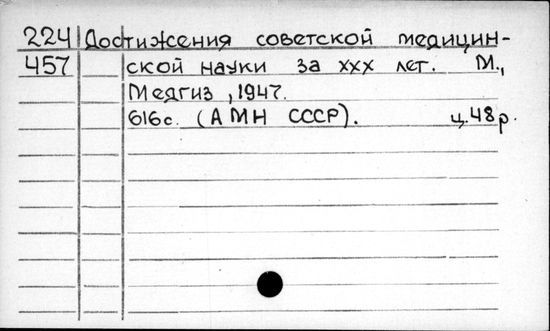 224 Достижения советской медицин-
457 ской науки за ххх лет. М.,
Медгиз, 1947.
616с. (АМН СССР). ц.48р.